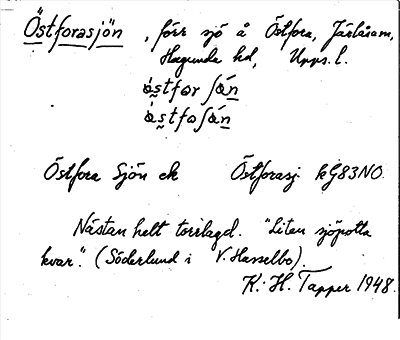 Östforasjön, förr sjö å Östfora, Järlåsam,
Hagunda hd, Upps. l.
östfor sjön
Östfora Sjön ek Östforasj. kG83NO.
Nästan helt torrlagd. "Liten sjöpotta
kvar." (Söderlund i V. Hasselbo).
K. H. Tapper 1948.